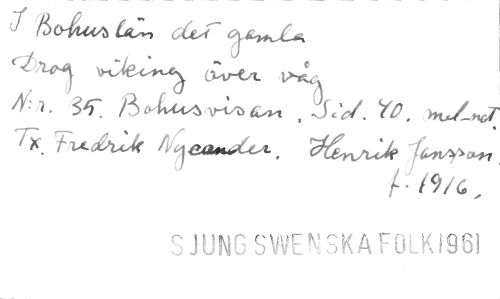 I Bohuslän det gamla
Drog viking över våg
N:r. 35. Bohusvisan. Sid. 40. mel-not
Tx. Fredrik Nycander. Henrik Jansson.
f. 1916.
SJUNG SWENSKA FOLK 1961